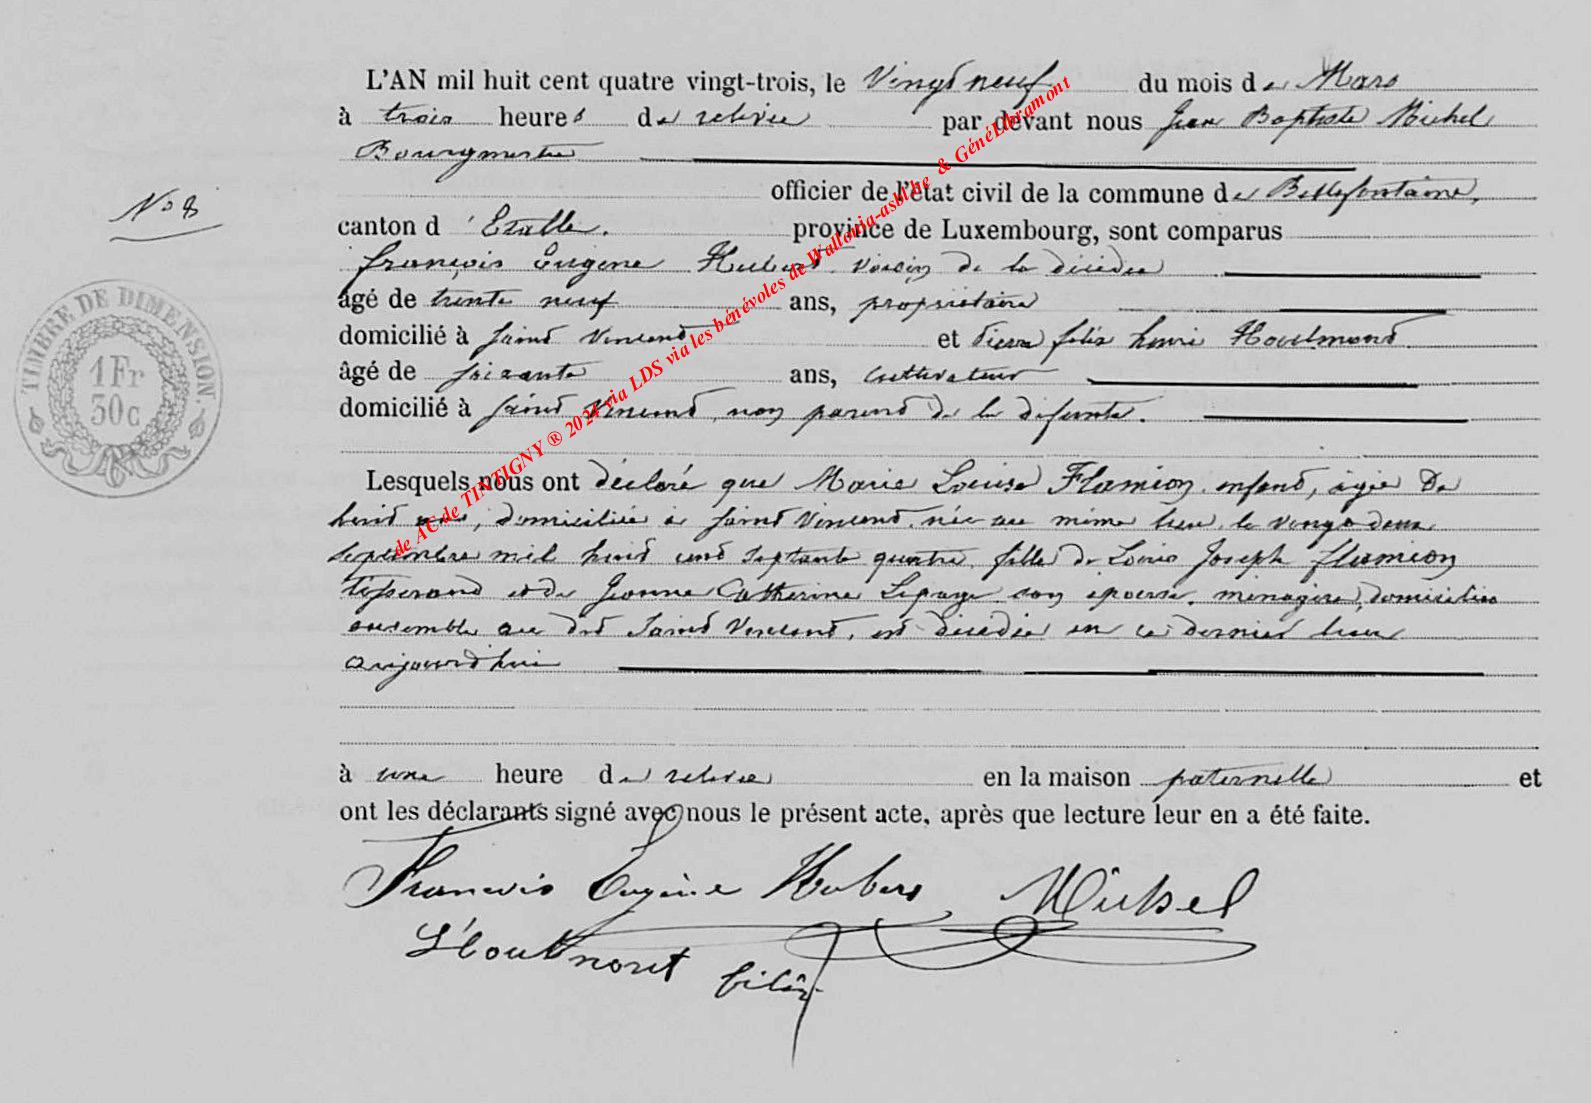 L'AN mil huit cent quatre vingt-trois, le Vingt neuf du mois de Mars
à trois heures de relevée par devant nous Jean Baptiste Michel
Bourgmestre
officier de l'état civil de la commune de Bellefontaine,
N° 8
canton d'Etalle. province de Luxembourg, sont comparus
françois Eugène Hubert voisin de la décédée
âgé de trente neuf ans, propriétaire
domicilié à Saint Vincent et Pierre félix henri
âgé de soixante ans, cultivateur
domicilié à Saint Vincent, non parent de la defunte.
Lesquels nous ont déclaré que Marie Louise Flamion enfant, agée De
huit ans, domiciliée à Saint Vincent, née au même lieu le vingt deux
Septembre mil huit cent septante quatre, fille de Louis Joseph flamion
tisserand et de Jeanne Catherine Lepage son épouse, ménagère, domiciliés
ensemble au dit Saint Vincent, est décédée en ce dernier lieu
aujourd'hui
à une heure de relevée en la maison paternelle et
ont les déclarants signé avec nous le présent acte, après que lecture leur en a été faite.
Francois Eugène Hubert Michel
TIMBRE DE DIMENSION
1 Fr
30 c
de AC de TINTIGNY ® 2024 via LDS via les bénévoles de Wallonia-asbl.be & GénéLibramont